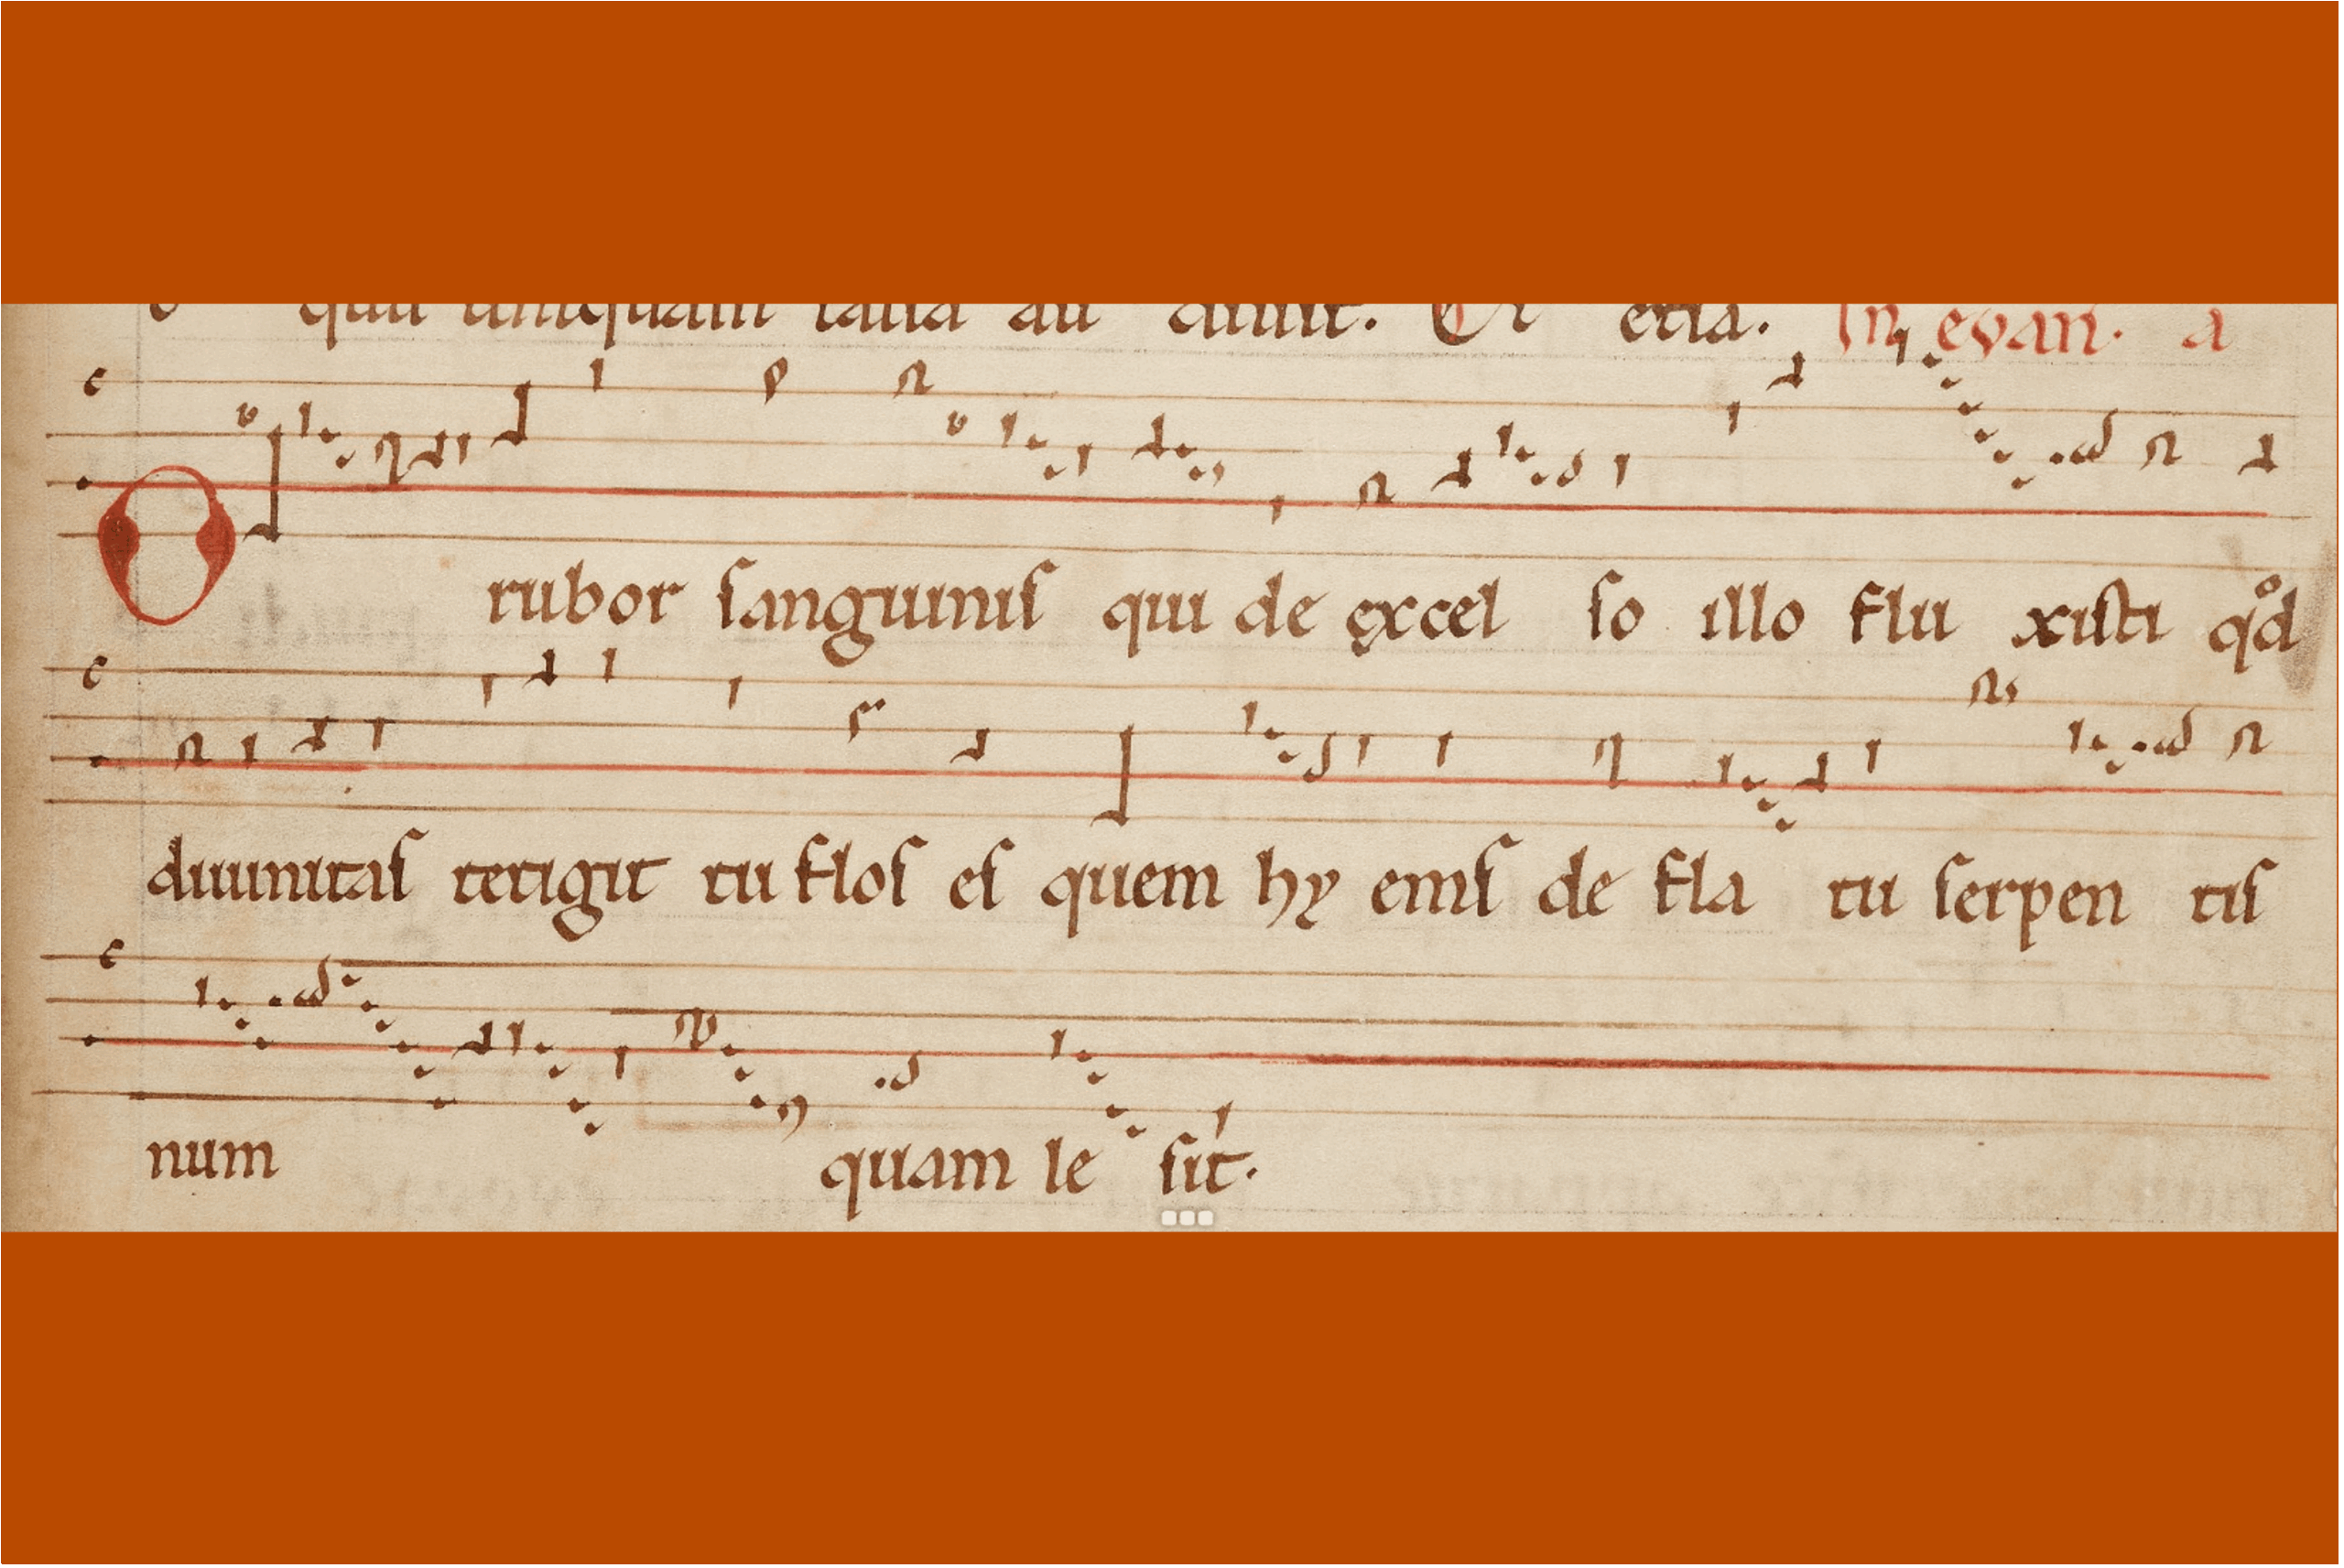 quis umquam talia au diuit. Et etia. In evan. a
c
O rubor sanguinis qui de ęxcel so illo flu xisti qd̊
c
diuinitas tetigit tu flos es quem hy ems de fla tu serpen tis
c
num quam le sit.